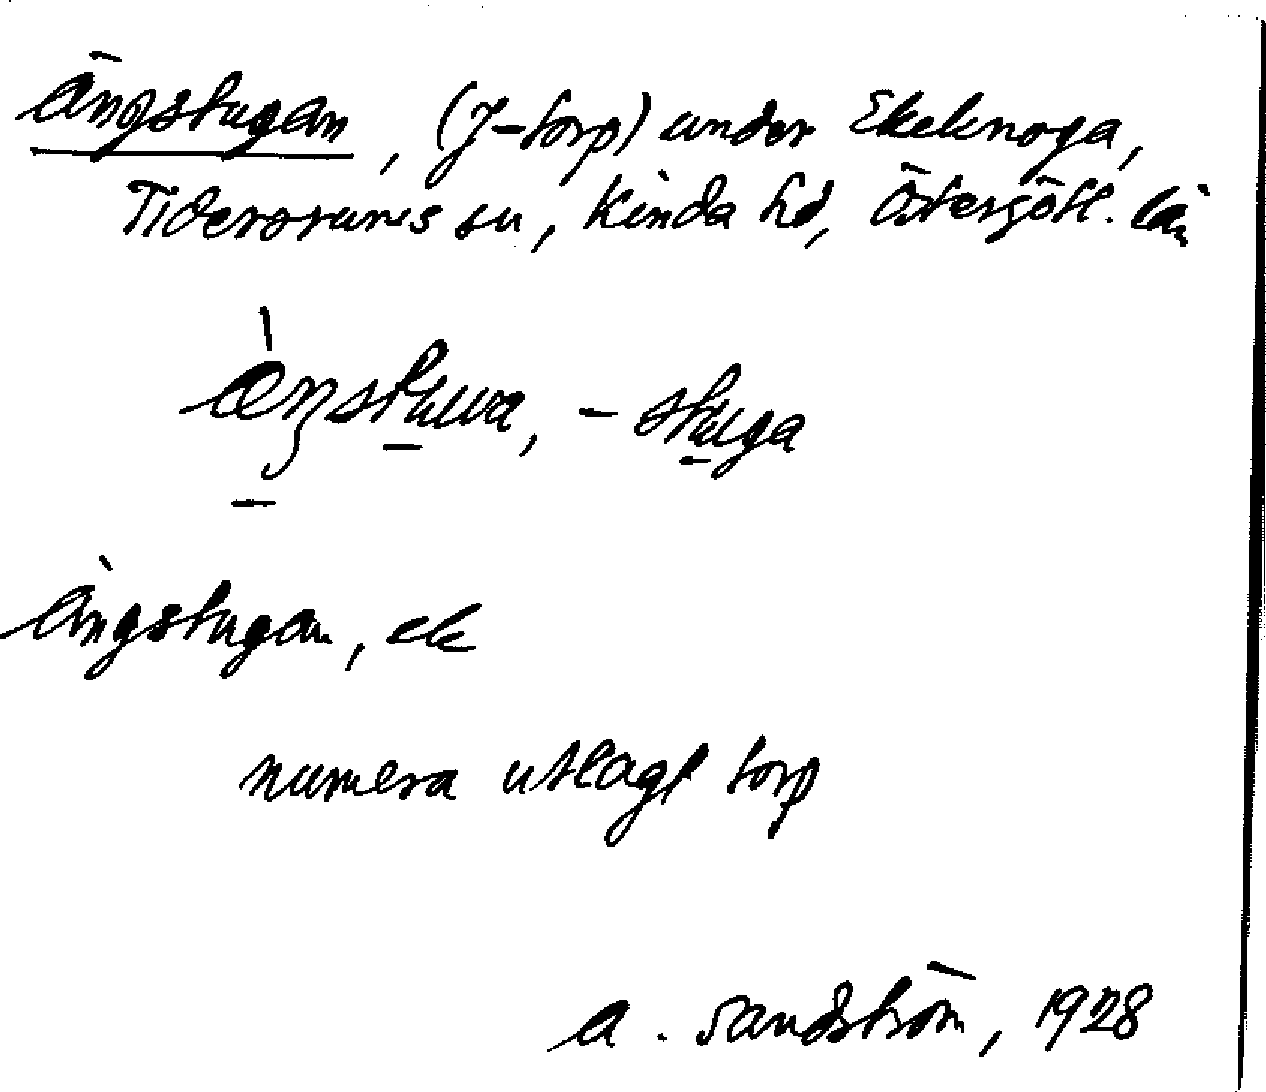 Ängstugan, (f-torp) under Ekeknoga,
Tidersrums sn, Kinda hd, Östergötl. län
æŋstuwa, -stuga
Ängstugan, ek
numera utlagt torp
A. Sandström, 1928